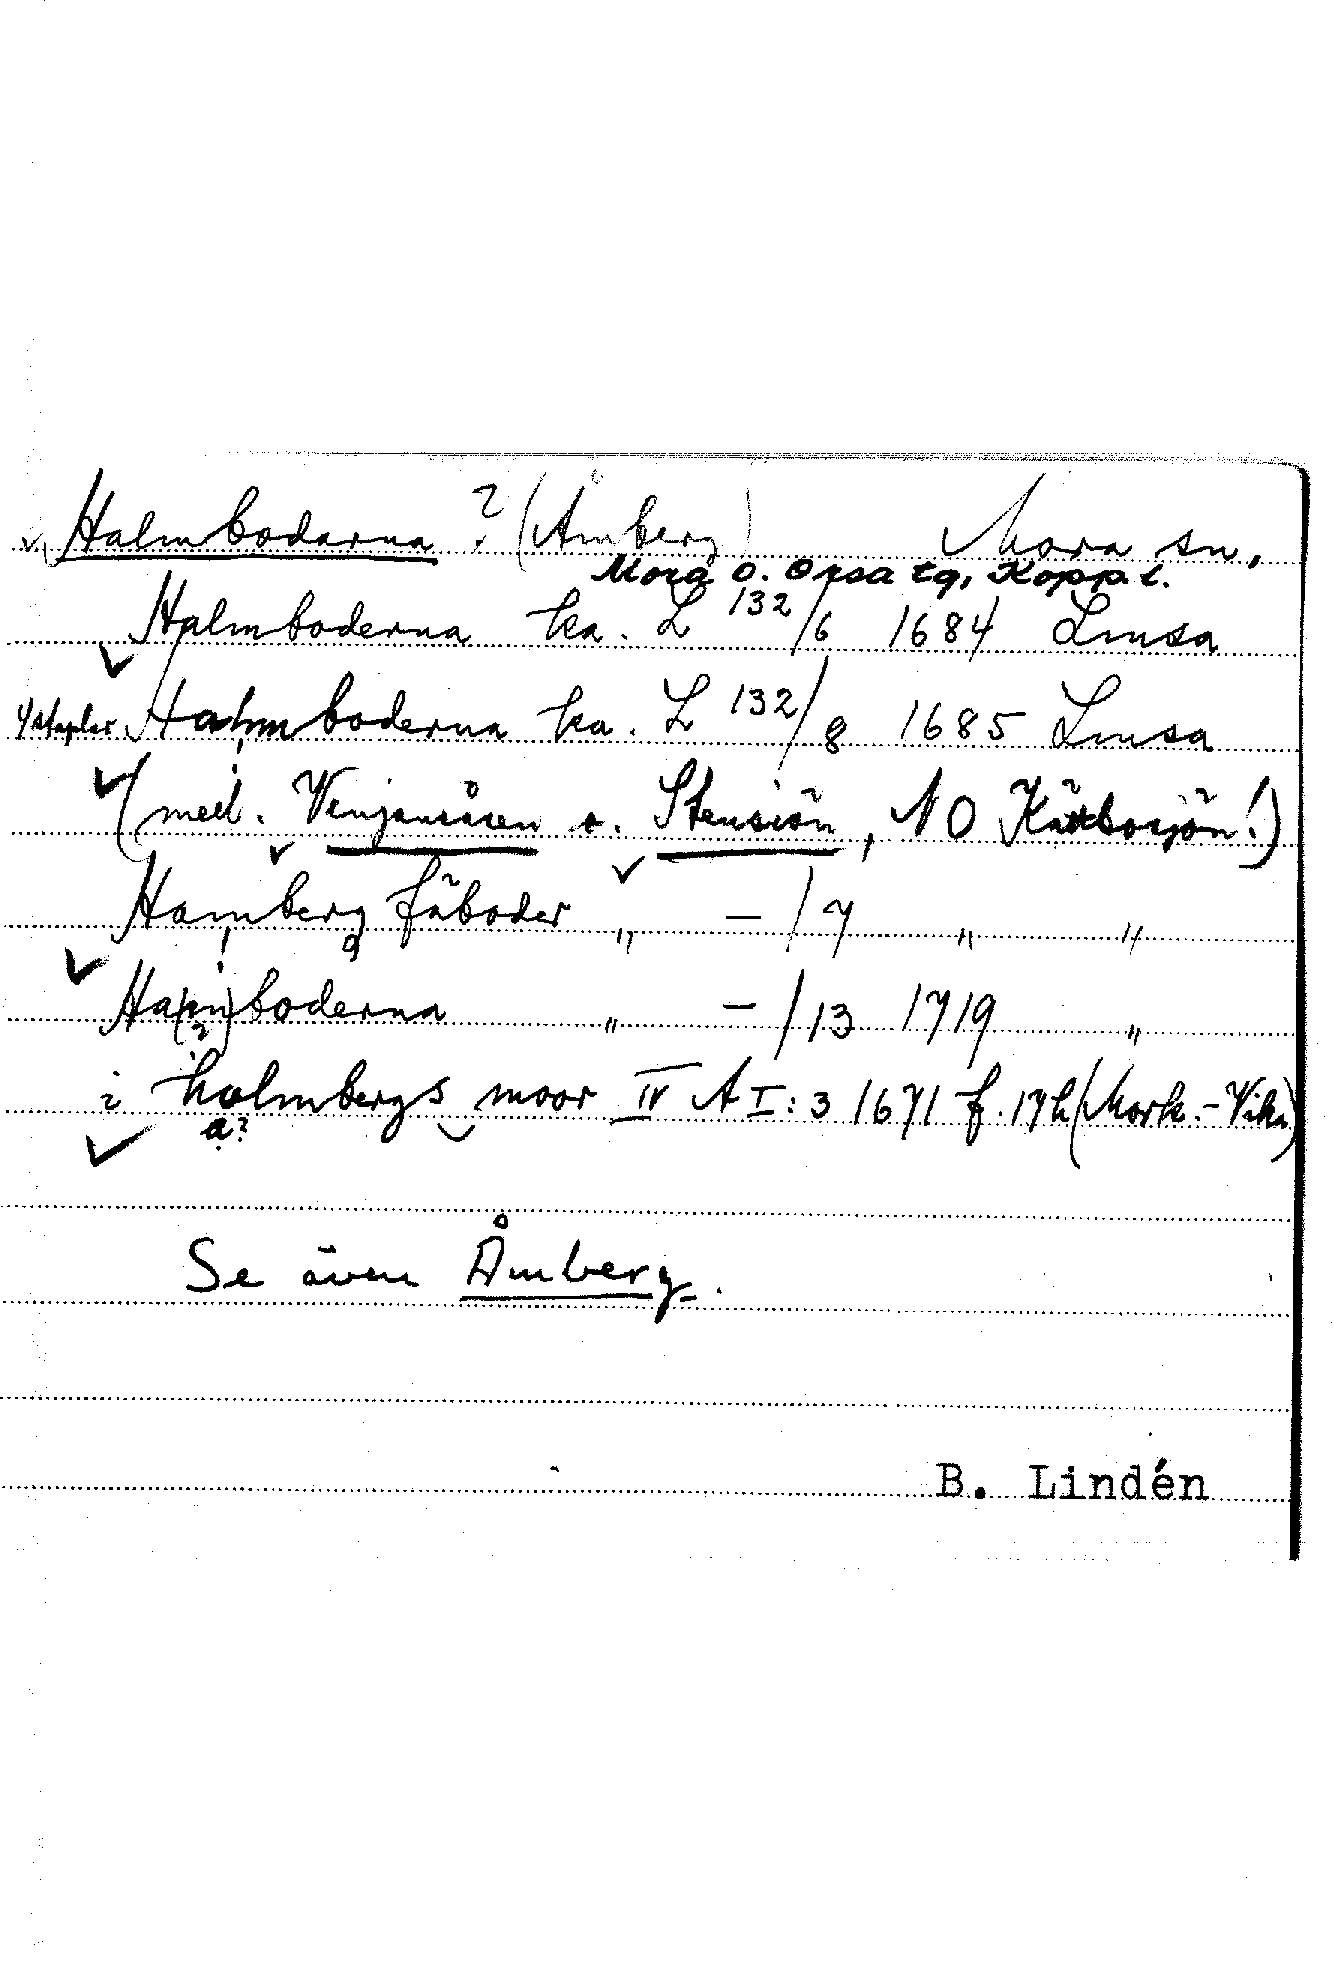 Halmbodarna ? (Åmberg) Mora sn.
Mora o. Orsa tg, Kopp. l.
Halmboderna ka. L 132/6 1684 Limsa
4 staplar Halmboderna ka. L 132/8 1685 Limsa
(med. Venjansåsen o. Stensiön, NO Kättbosjön!)
Hamberg fäboder " - / 7 " "
Ha(m)boderna " - / 13 1719 "
(?)
i holmbergs moor IV A I: 3 1671 f. 17h (Mork.-Vika)
a?
Se även Åmberg.
B. Lindén